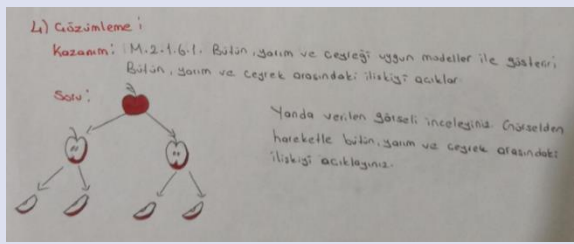 4) Çözümleme:
Kazanım: M.2.1.6.1. Bütün, yarım ve çeyreği uygun modeller ile gösterir;
Bütün, yarım ve çeyrek arasındaki ilişkiyi açıklar.
Soru:
Yanda verilen görseli inceleyiniz. Görselden
hareketle bütün, yarım ve çeyrek arasındaki
ilişkiyi açıklayınız.